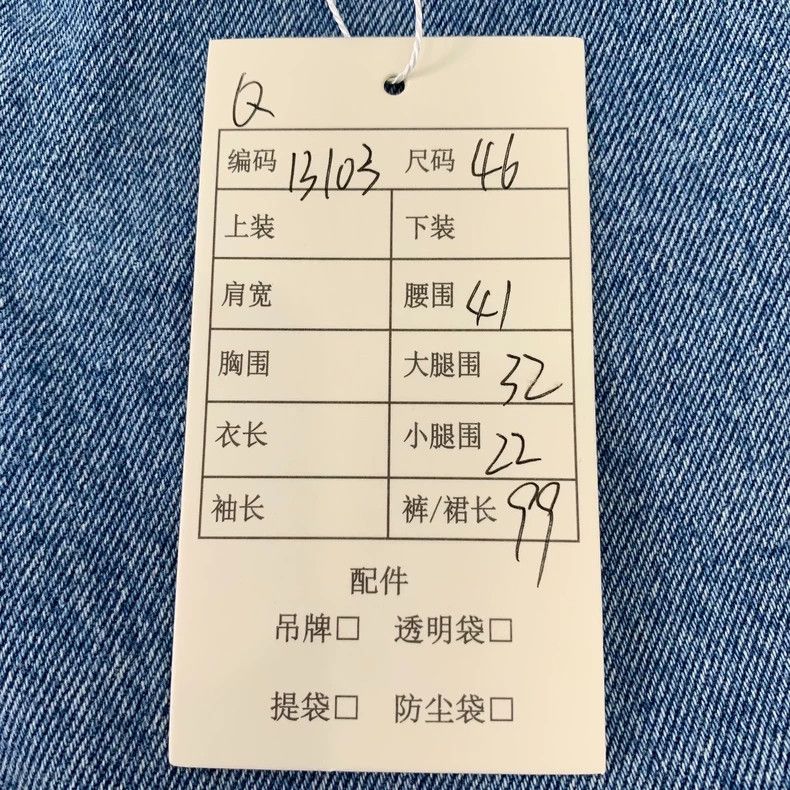 Q
编码 13103 尺码 46
上装 下装
肩宽 腰围 41
胸围 大腿围 32
衣长 小腿围 22
袖长 裤/裙长 99
配件
吊牌□ 透明袋□
提袋□ 防尘袋□